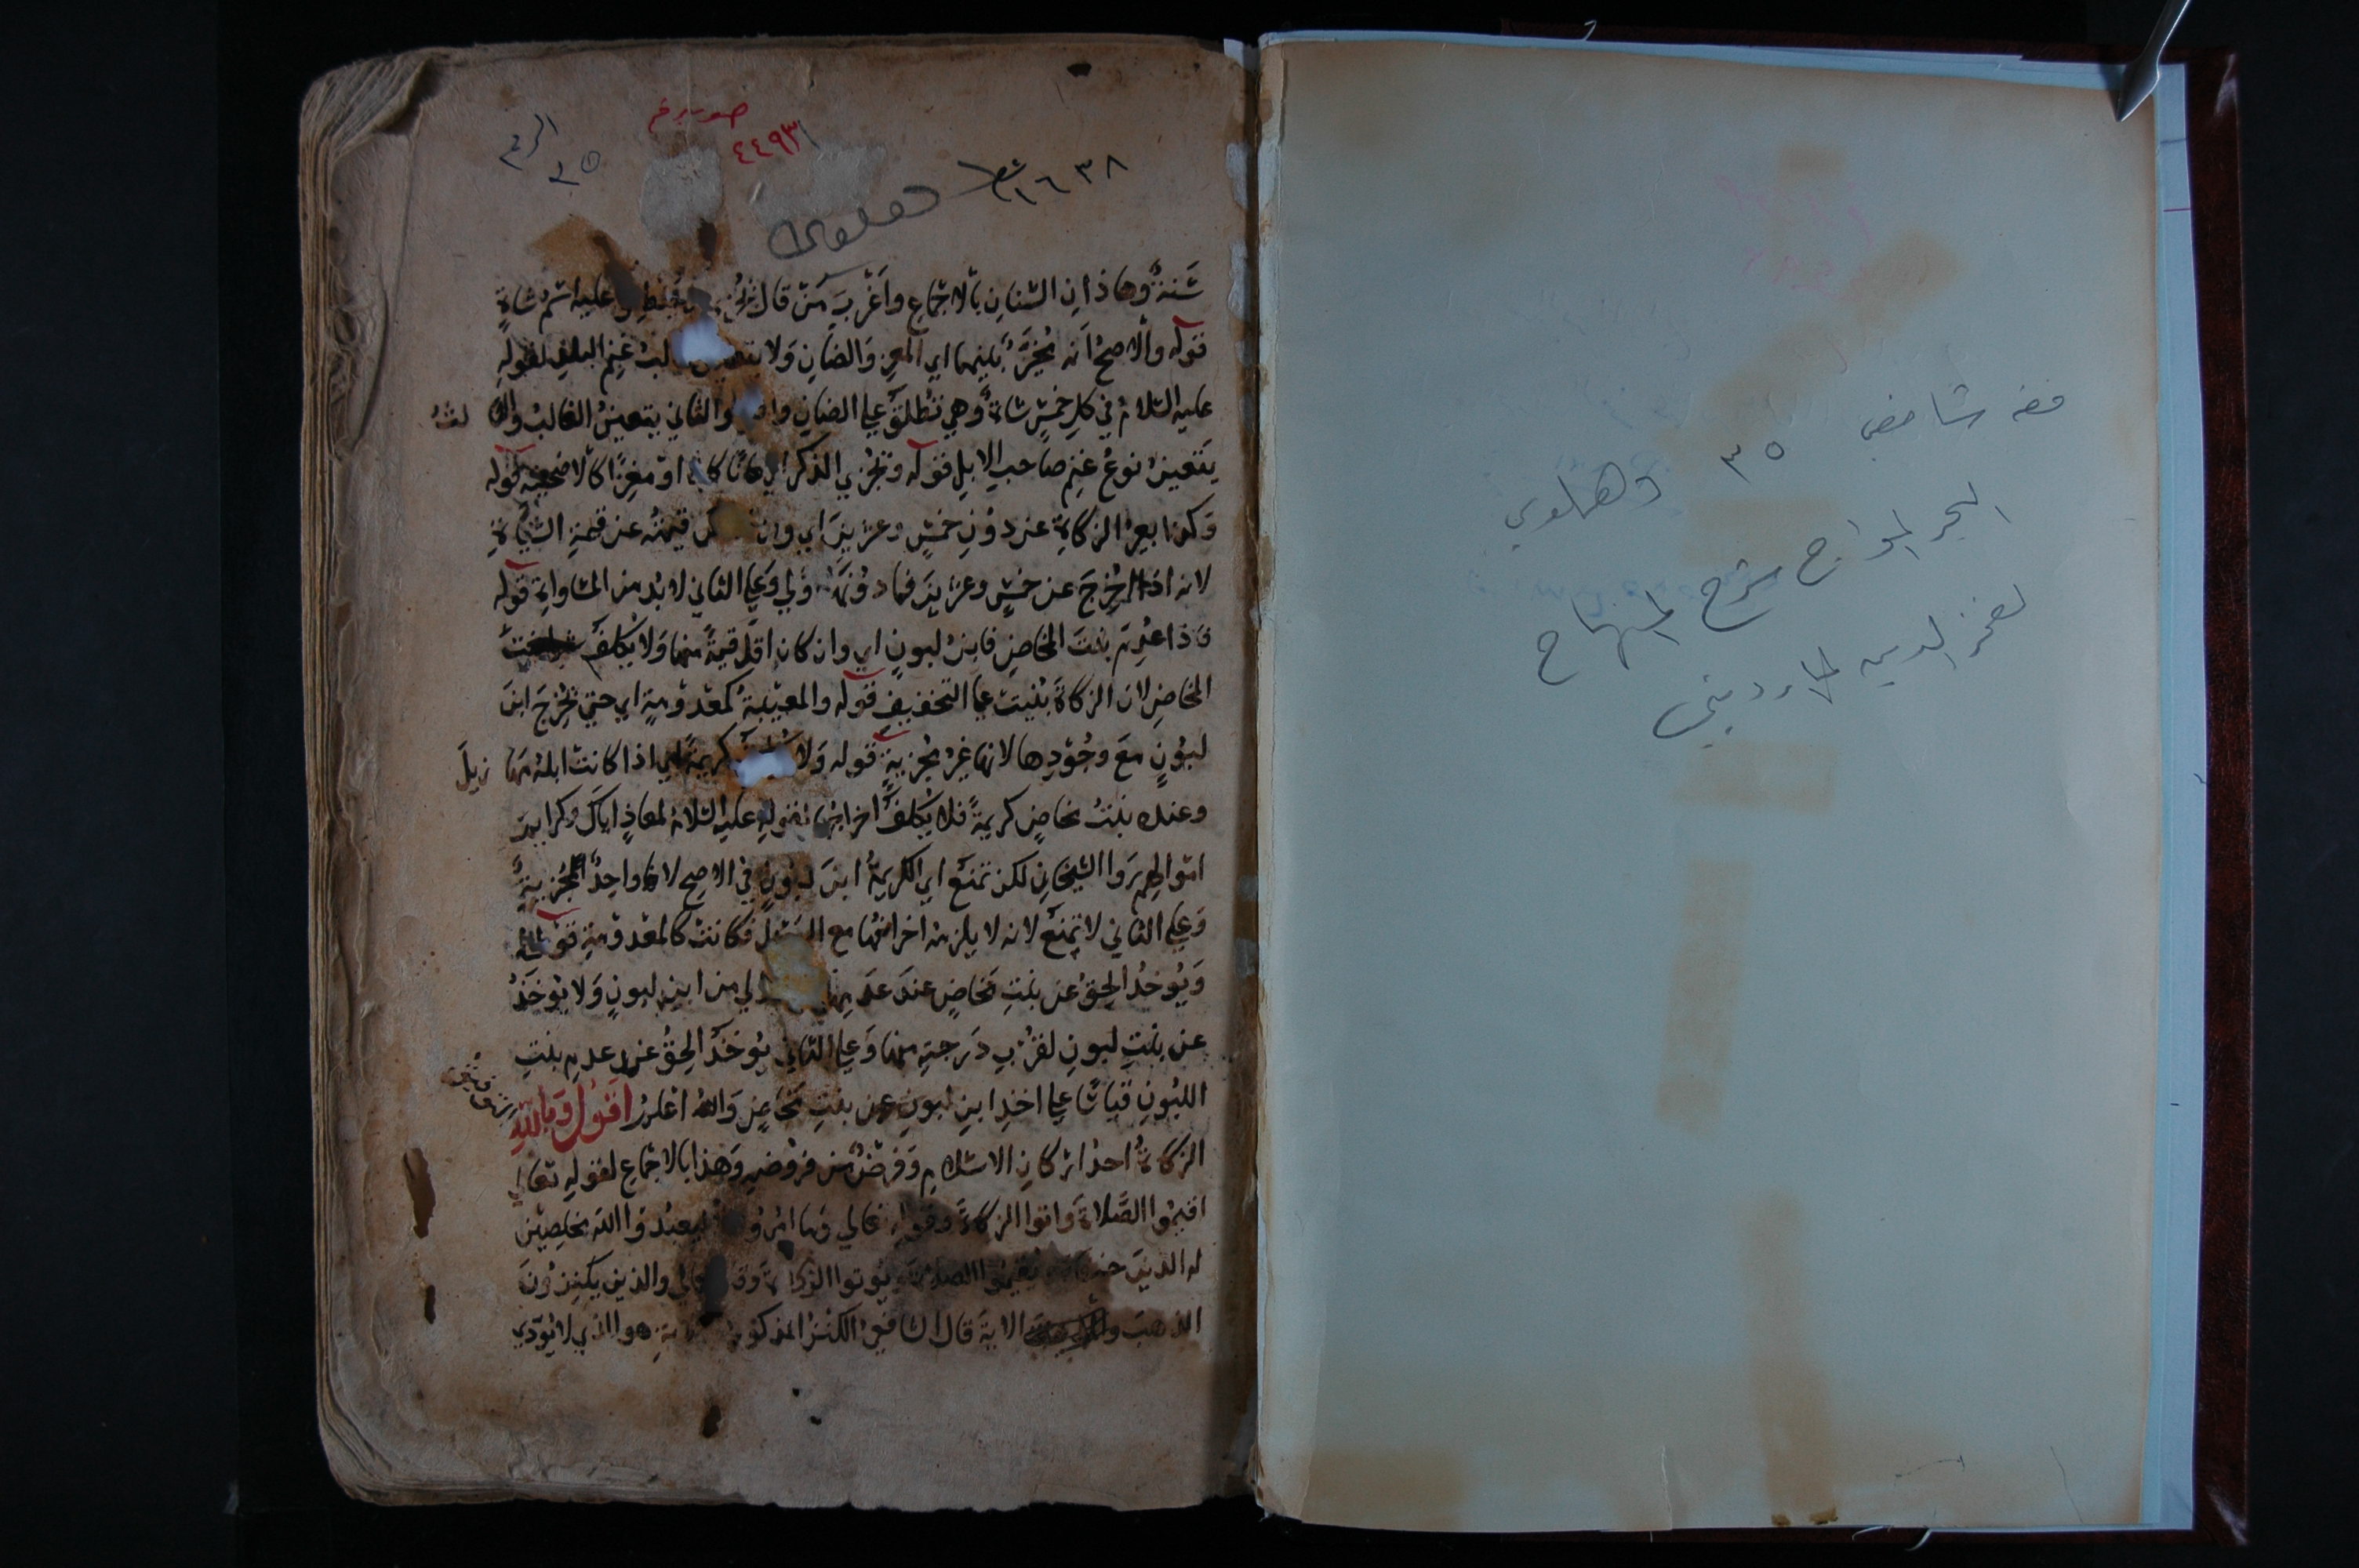 فقه شافعي ٣٥ دهلوي
البحر المواج شرح المنهاج
لفخر الدين المارديني
٤٤٩٣
١٦٣٨
٣٥
سنة وهاذان السنان بالاجماع واغرب من قال عليه اسم شاة
قوله والاصح انه مخير بينهما اي المعز والضان ولا غنم البلد لقوله
عليه السلام في كل خمس شاة وهي تطلق علي الضان والثاني يتعين الغالب والثا لث
يتعين نوع غنم صاحب الابل قوله وتجزي الذكر اي ضانا كان او معزا كالاضحية قوله
وكذا بعير الزكاة عن دون خمس وعزين اي وان قيمته عن قيمة الشياة
لانه اذا اخرج عن خمس وعزين فما دونها ولي وعلي الثاني لا بد من المساواة قوله
فاذا عدم بنت المخاض فابن لبون اي وان كان اقل قيمة منها ولا يكلف بنت
المخاض لان الزكاة بنيت علي التخفيف قوله والمعيبة كمعدومة اي حتي تخرج ابن
لبون مع وجودها لانها غير مجزية قوله ولا كريمة اي اذا كانت ابله مها زيل
وعنده بنت مخاض كريمة فلا يكلف اخراجها لقوله عليه السلام لمعاذ اياك وكرايم
اموالهم رواه الشيخان لكن تمنع اي الكريمة ابن لبون في الاصح لانه واجد المجزية
وعلي الثاني لا تمنع لانه لا يلزمه اخراجها مع فكانت كالمعدومة قوله
ويوخذ الحق عن بنت مخاض عند عدمها لي من ابن لبون ولا يوخذ
عن بنت لبون لقرب درجته منها وعلي الثاني يوخذ الحق عن عدم بنت
اللبون قياسا علي اخذ ابن لبون عن بنت مخاض والله اعلم اقول وبالله
الزكاة احد اركان الاسلام وفرض من فروضه وهذا بالاجماع لقوله تعالي
اقيموا الصلاة واتوا الزكاة وقوله تعالي وما امروا ليعبدوا الله مخلصين
له الدين يقيموا الصلاة ويوتوا الزكاة والذين يكنزون
الذهب الاية قال الشافعي الكنز المذكور هو الذي لا يودي